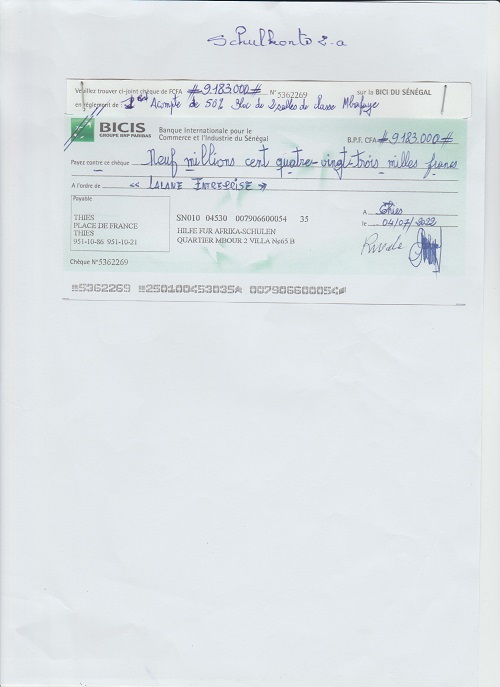 Schulkonto 2.a
Veuillez trouver ci-joint chèque de FCFA # 9.183.000 # N° 5362269 sur la BICI DU SÉNÉGAL
en règlement de : Acompte de 50% de 2 salles de classe Mbafaye
BICIS
GROUPE BNP PARIBAS
Banque Internationale pour le
Commerce et l'Industrie du Sénégal
B.P.F. CFA # 9.183.000 #
Payez contre ce chèque Neuf millions cent quatre-vingt-trois milles francs
A l'ordre de « LALANE ENTREPRISE »
Payable
THIES
PLACE DE FRANCE
THIES
951-10-86 951-10-21
SN010 04530 007906600054 35
HILFE FUR AFRIKA-SCHULEN
QUARTIER MBOUR 2 VILLA No65 B
A Thies
le 04/07/2022
Chèque N°5362269
5362269 250100453035A 007906600054